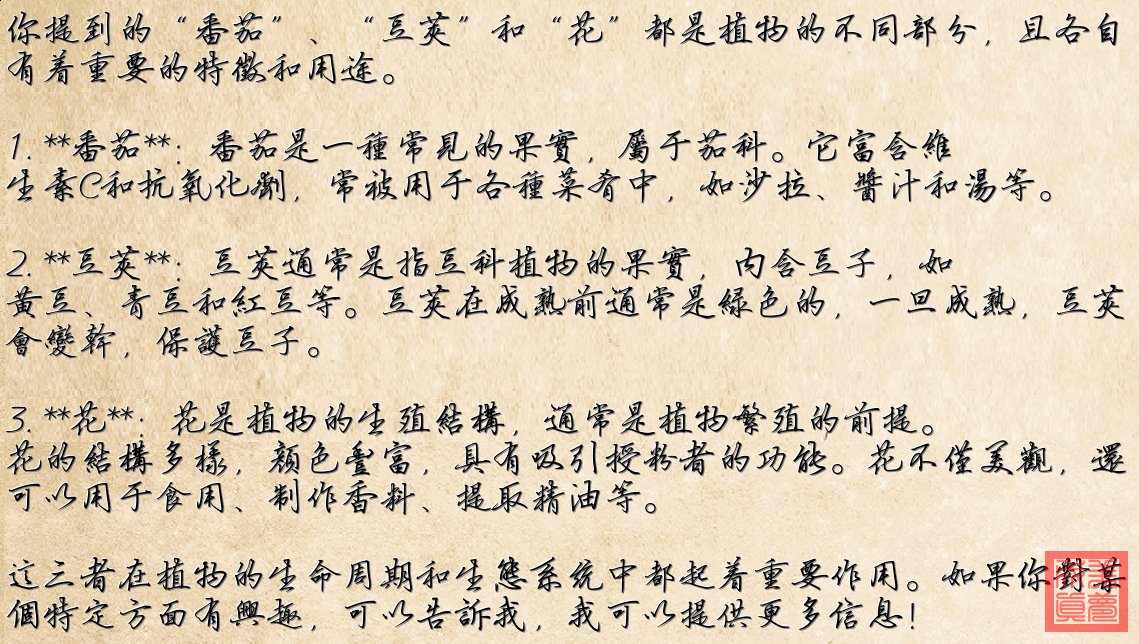 你提到的“番茄”、“豆莢”和“花”都是植物的不同部分，且各自
有着重要的特徵和用途。
1. **番茄**：番茄是一種常見的果實，屬于茄科。它富含維
生素C和抗氧化劑，常被用于各種菜肴中，如沙拉、醬汁和湯等。
2. **豆莢**：豆莢通常是指豆科植物的果實，內含豆子，如
黃豆、青豆和紅豆等。豆莢在成熟前通常是綠色的，一旦成熟，豆莢
會變幹，保護豆子。
3. **花**：花是植物的生殖結構，通常是植物繁殖的前提。
花的結構多樣，顏色豐富，具有吸引授粉者的功能。花不僅美觀，還
可以用于食用、制作香料、提取精油等。
這三者在植物的生命周期和生態系統中都起着重要作用。如果你對某
個特定方面有興趣，可以告訴我，我可以提供更多信息！